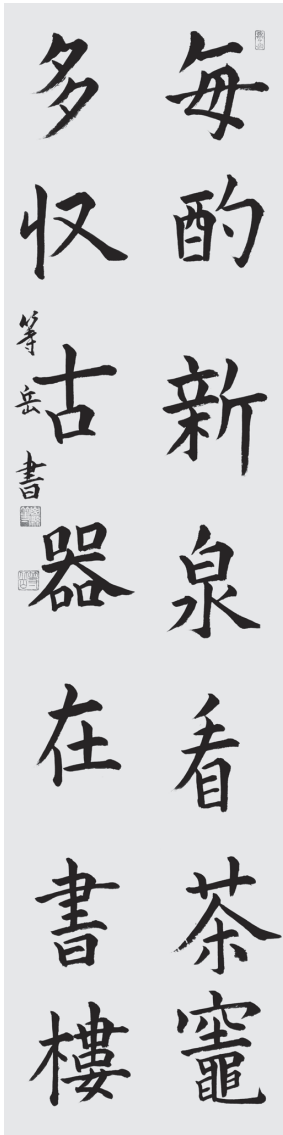 毎酌新泉看茶竈
多収古器在書樓
等岳書